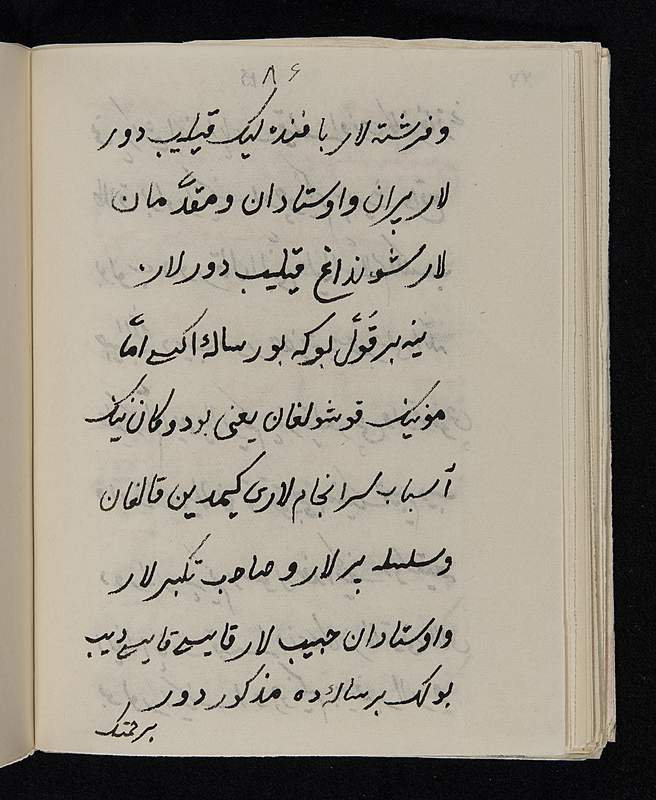 ٨۶
و فرشته لار بافنده لیک قیلیب دور
لار پیران و اوستادان و مقدَّمان
لار شونداغ قیلیب دورلار.
ینه بر قَوْل بوکه بو رسالهٔ امّا
قوشولغان یعنی بو دوکاننینک
اسباب سرانجام لاری کیمدین قالغان
و سلسله پیر لار و صاحب تکبیر لار
و اوستادان حبیب لار قایسی قایسی دیب
بولک بر رساله ده مذکور دور